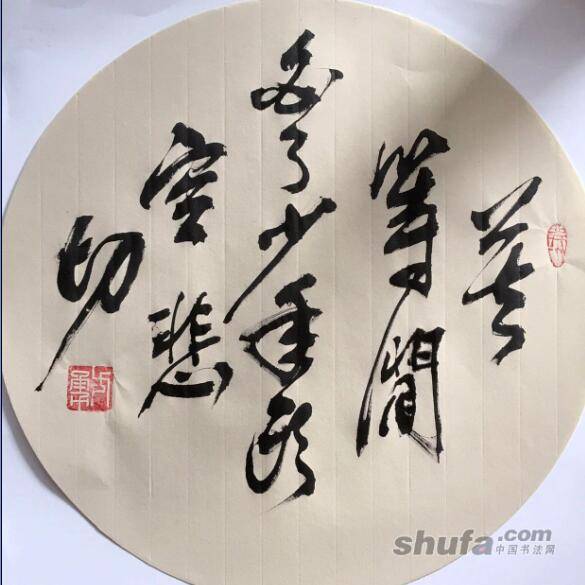 莫
等閒
白了少年头
空悲
切
shufa.com
中国书法网